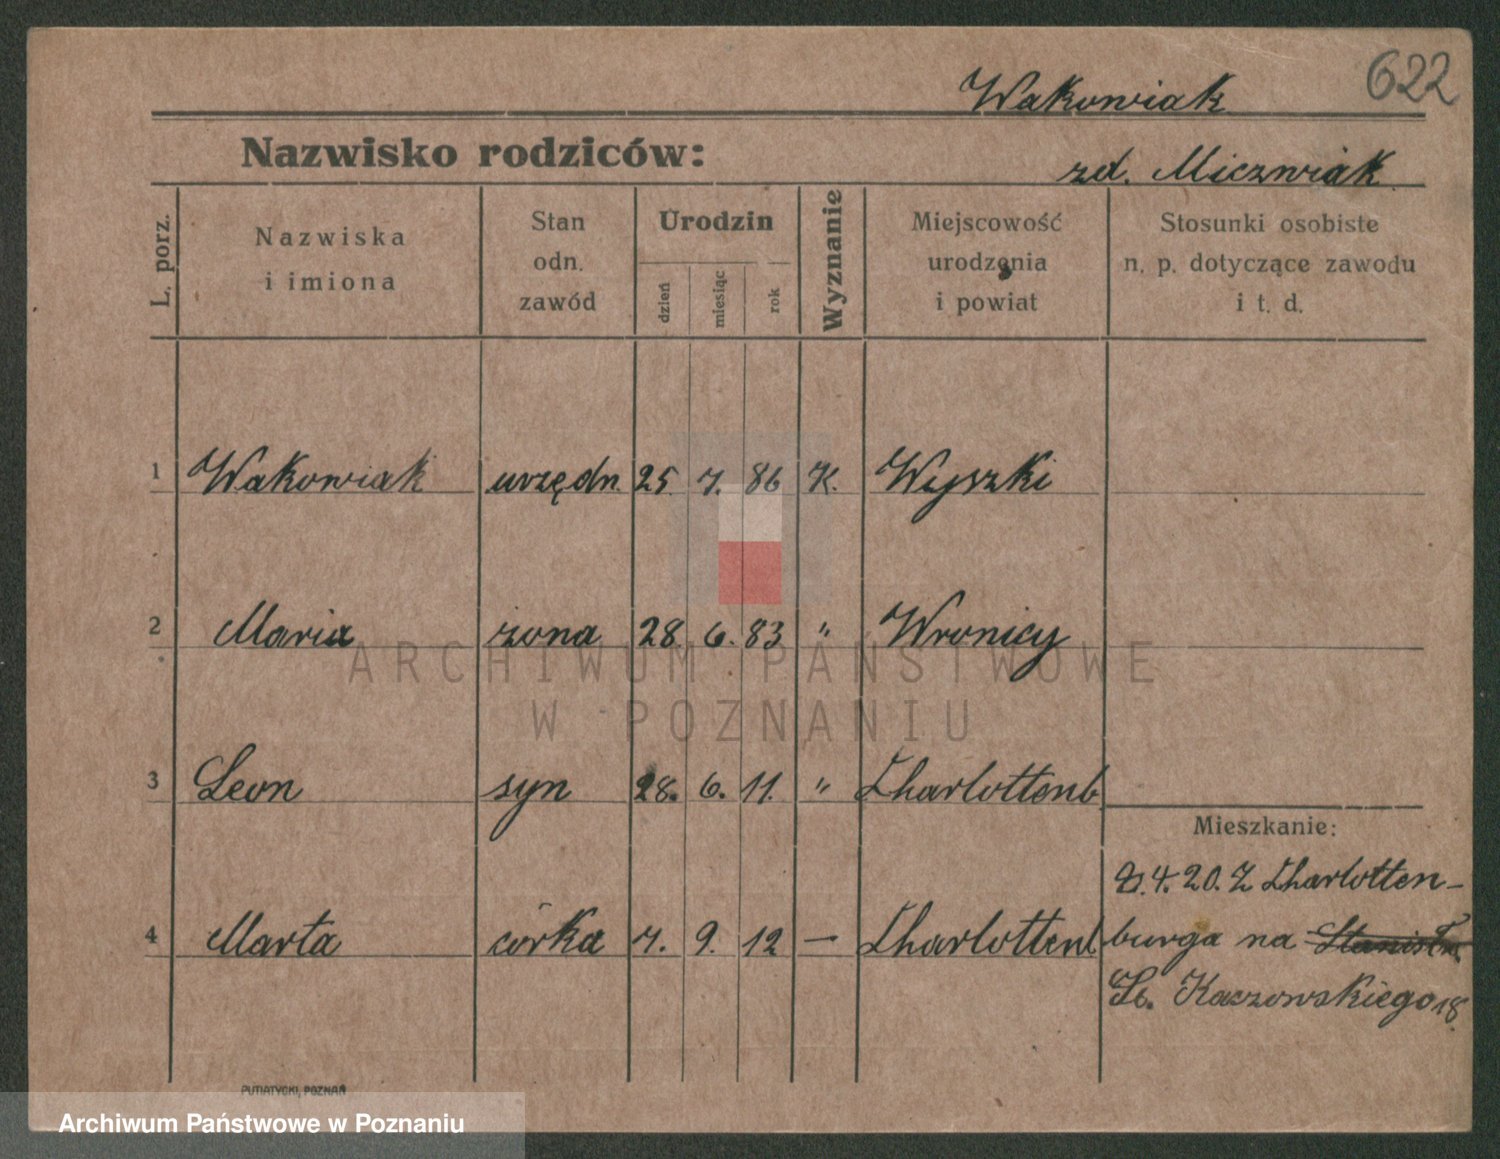 622
Wakowiak
Nazwisko rodziców:
zd. Miczwiak
L. porz.
Nazwiska
i imiona
Stan
odn.
zawód
Urodzin
dzień
miesiąc
rok
Wyznanie
Miejscowość
urodzenia
i powiat
Stosunki osobiste
n. p. dotyczące zawodu
i t. d.
1 Wakowiak urzędn. 25. 7. 86 K. Wyszki
2 Maria żona 28. 6. 83 " Wronicy
3 Leon syn 28. 6. 11. " Charlottenb
Mieszkanie:
4. 20. Z Charlotten-
4 Marta córka 7. 9. 12 — Charlottenb
burga na
Kaczowskiego 18.
PUTIATYCKI, POZNAŃ
ARCHIWUM PAŃSTWOWE
W POZNANIU
Archiwum Państwowe w Poznaniu